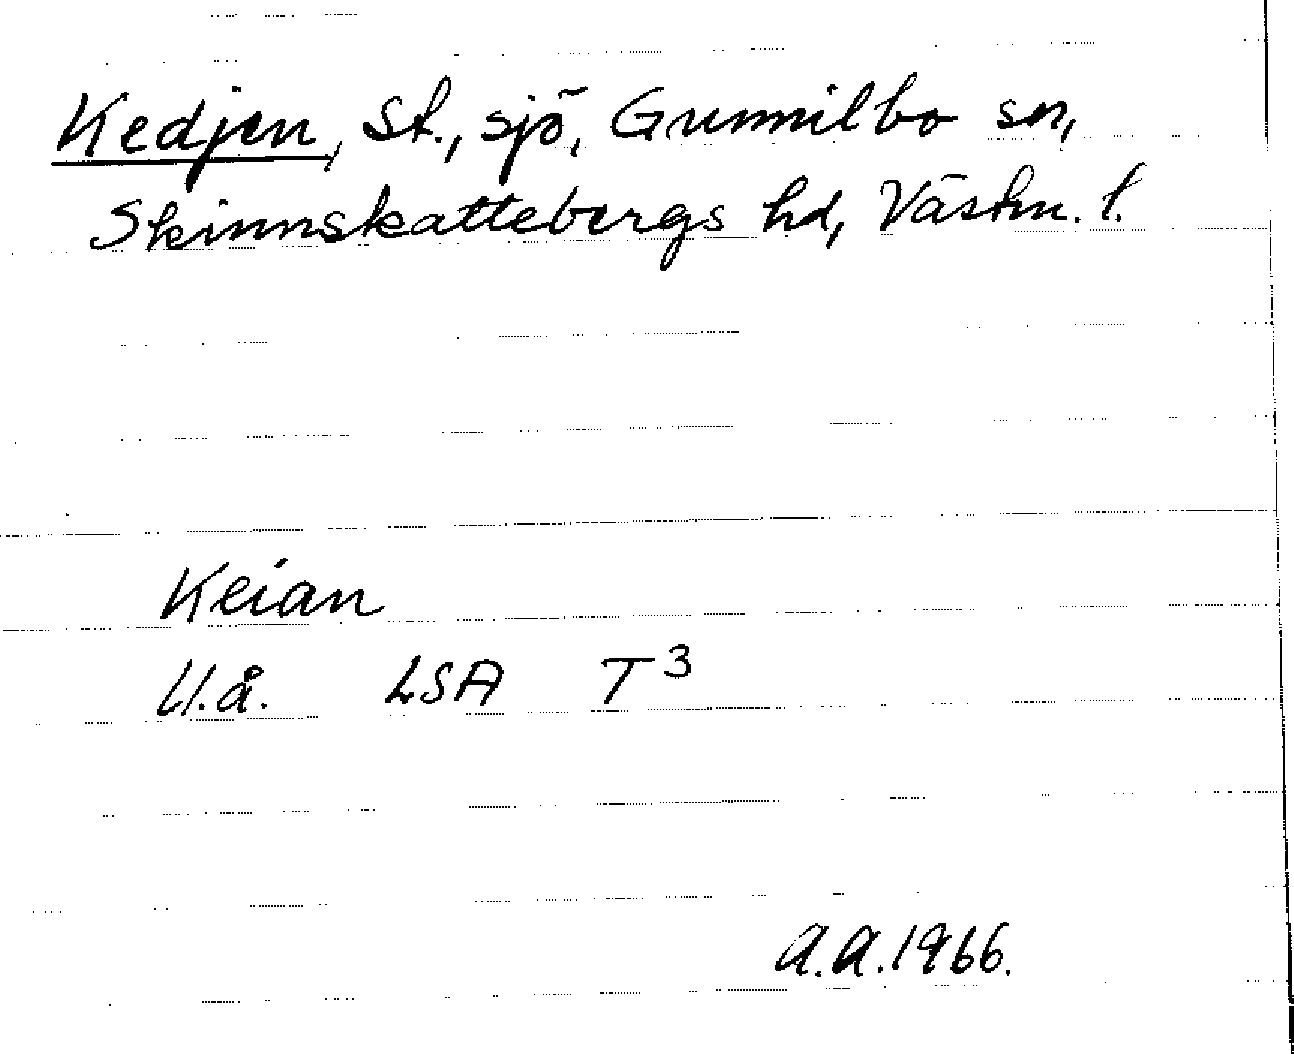 Kedjen, St., sjö, Gunnilbo sn,
Skinnskattebergs hd, Västm. l.
Keian
U.å. LSA T³
A.A.1966.